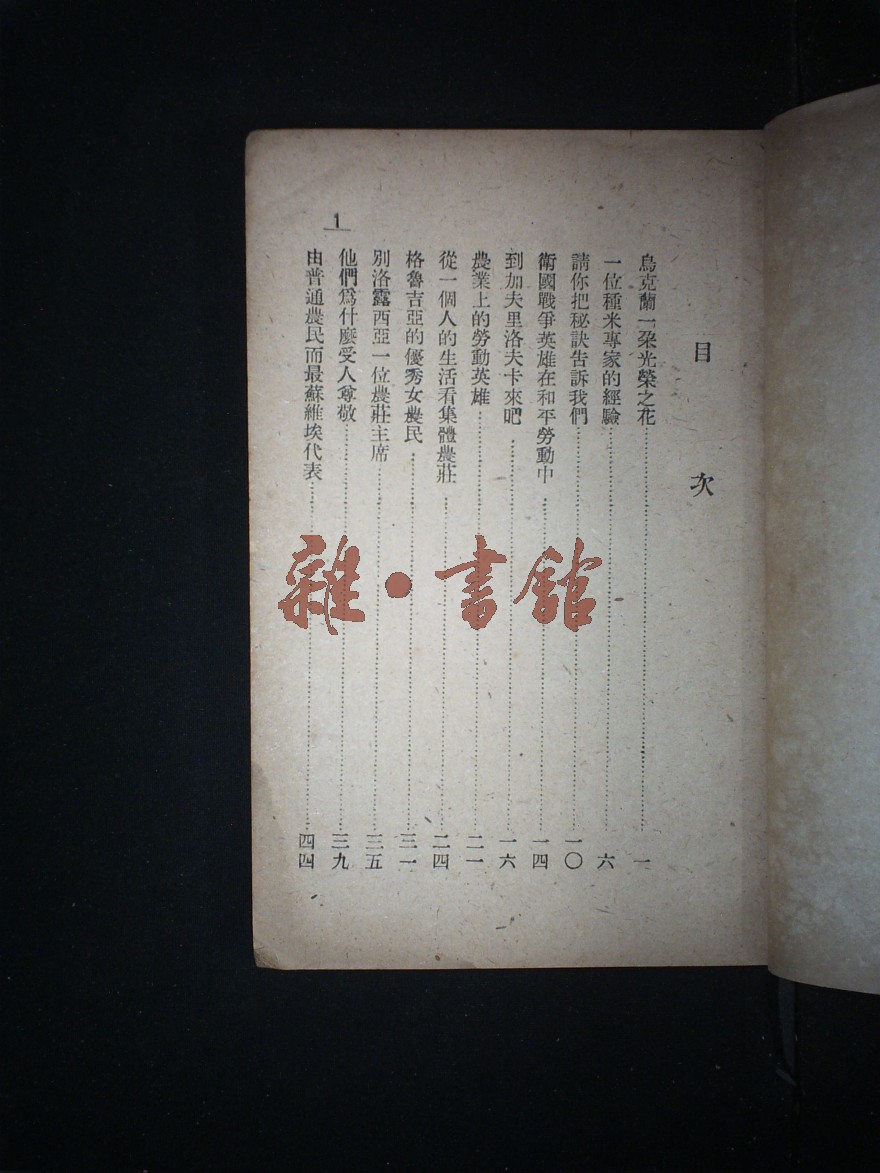 目次
烏克蘭一朶光榮之花……一
一位種米專家的經驗……六
請你把秘訣告訴我們……一〇
衛國戰爭英雄在和平勞動中……一四
到加夫里洛夫卡來吧……一六
農業上的勞動英雄……二一
從一個人的生活看集體農莊……二四
格魯吉亞的優秀女農民……三一
別洛露西亞一位農莊主席……三五
他們爲什麼受人尊敬……三九
由普通農民而最蘇維埃代表……四四
1
雜·書館